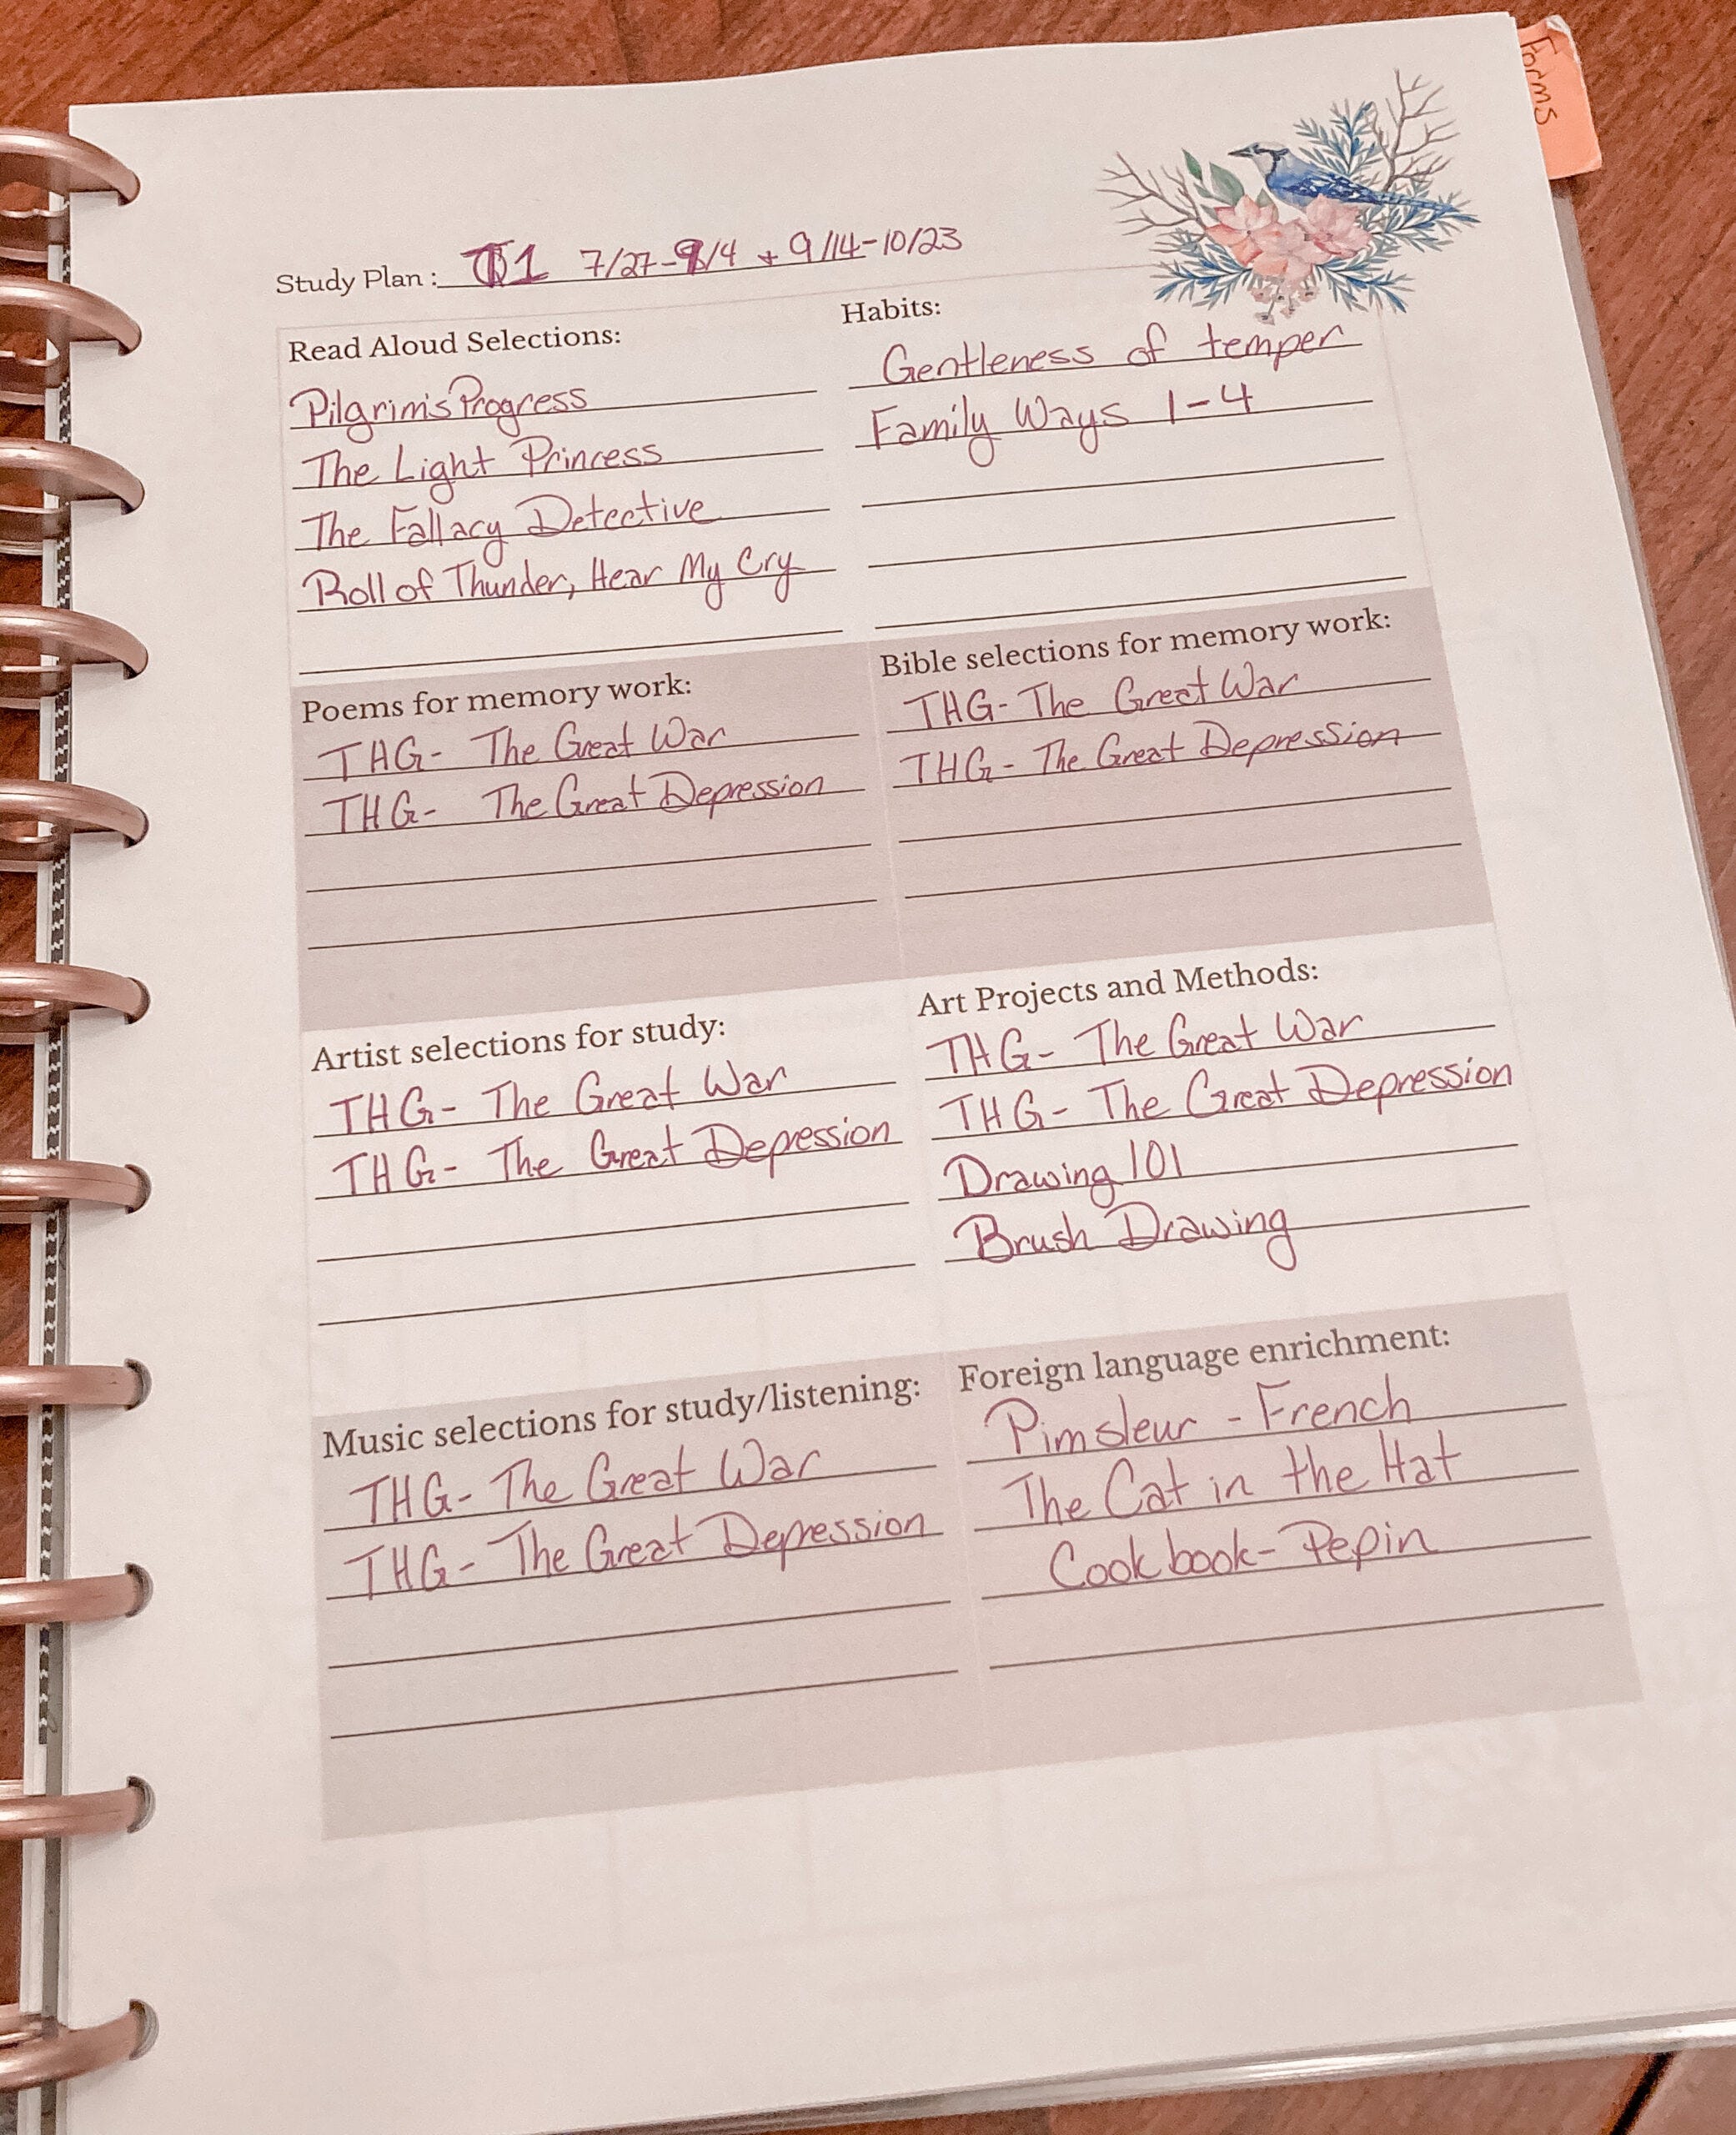 Forms
Study Plan : T1 7/27-9/4 + 9/14-10/23
Read Aloud Selections:
Pilgrim's Progress
The Light Princess
The Fallacy Detective
Roll of Thunder, Hear My Cry
Habits:
Gentleness of temper
Family Ways 1-4
Poems for memory work:
THG- The Great War
THG- The Great Depression
Bible selections for memory work:
THG- The Great War
THG- The Great Depression
Artist selections for study:
THG- The Great War
THG- The Great Depression
Art Projects and Methods:
THG- The Great War
THG- The Great Depression
Drawing 101
Brush Drawing
Music selections for study/listening:
THG- The Great War
THG- The Great Depression
Foreign language enrichment:
Pimsleur - French
The Cat in the Hat
Cookbook- Pepin